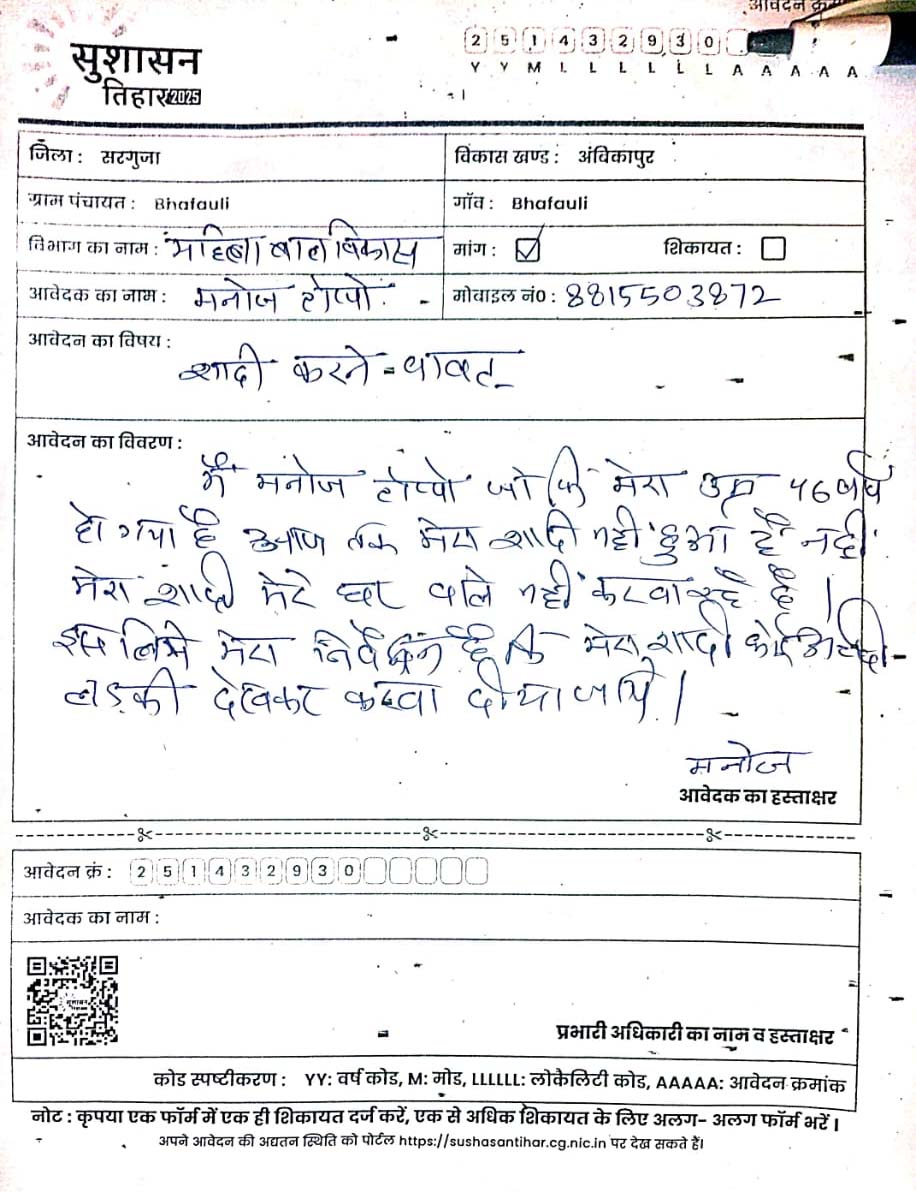 आवेदन क्र
सुशासन
तिहार 2025
2 5 1 4 3 2 9 3 0
Y Y M L L L L L L A A A A A
जिला : सरगुजा
विकास खण्ड : अंबिकापुर
ग्राम पंचायत : Bhafauli
गाँव : Bhafauli
विभाग का नाम : महिला बाल विकास
मांग : ☑ शिकायत : ☐
आवेदक का नाम : मनोज टोप्पो
मोबाइल नं० : 8815503872
आवेदन का विषय :
शादी करने - बाबत्
आवेदन का विवरण :
मैं मनोज टोप्पो जो कि मेरा उम्र 46 वर्ष
हो गया है आज तक मेरा शादी नहीं हुआ है नहीं
मेरा शादी मेरे घर वाले नहीं करवा रहे है।
इस लिये मेरा निवेदन है कि मेरा शादी कोई अच्छी
लड़की देखकर करवा दीया जाये।
मनोज
आवेदक का हस्ताक्षर
आवेदन क्रं : 2 5 1 4 3 2 9 3 0
आवेदक का नाम :
सुशासन
प्रभारी अधिकारी का नाम व हस्ताक्षर
कोड स्पष्टीकरण : YY: वर्ष कोड, M: मोड, LLLLLL: लोकैलिटी कोड, AAAAA: आवेदन क्रमांक
नोट : कृपया एक फॉर्म में एक ही शिकायत दर्ज करें, एक से अधिक शिकायत के लिए अलग- अलग फॉर्म भरें।
अपने आवेदन की अद्यतन स्थिति को पोर्टल https://sushasantihar.cg.nic.in पर देख सकते हैं।